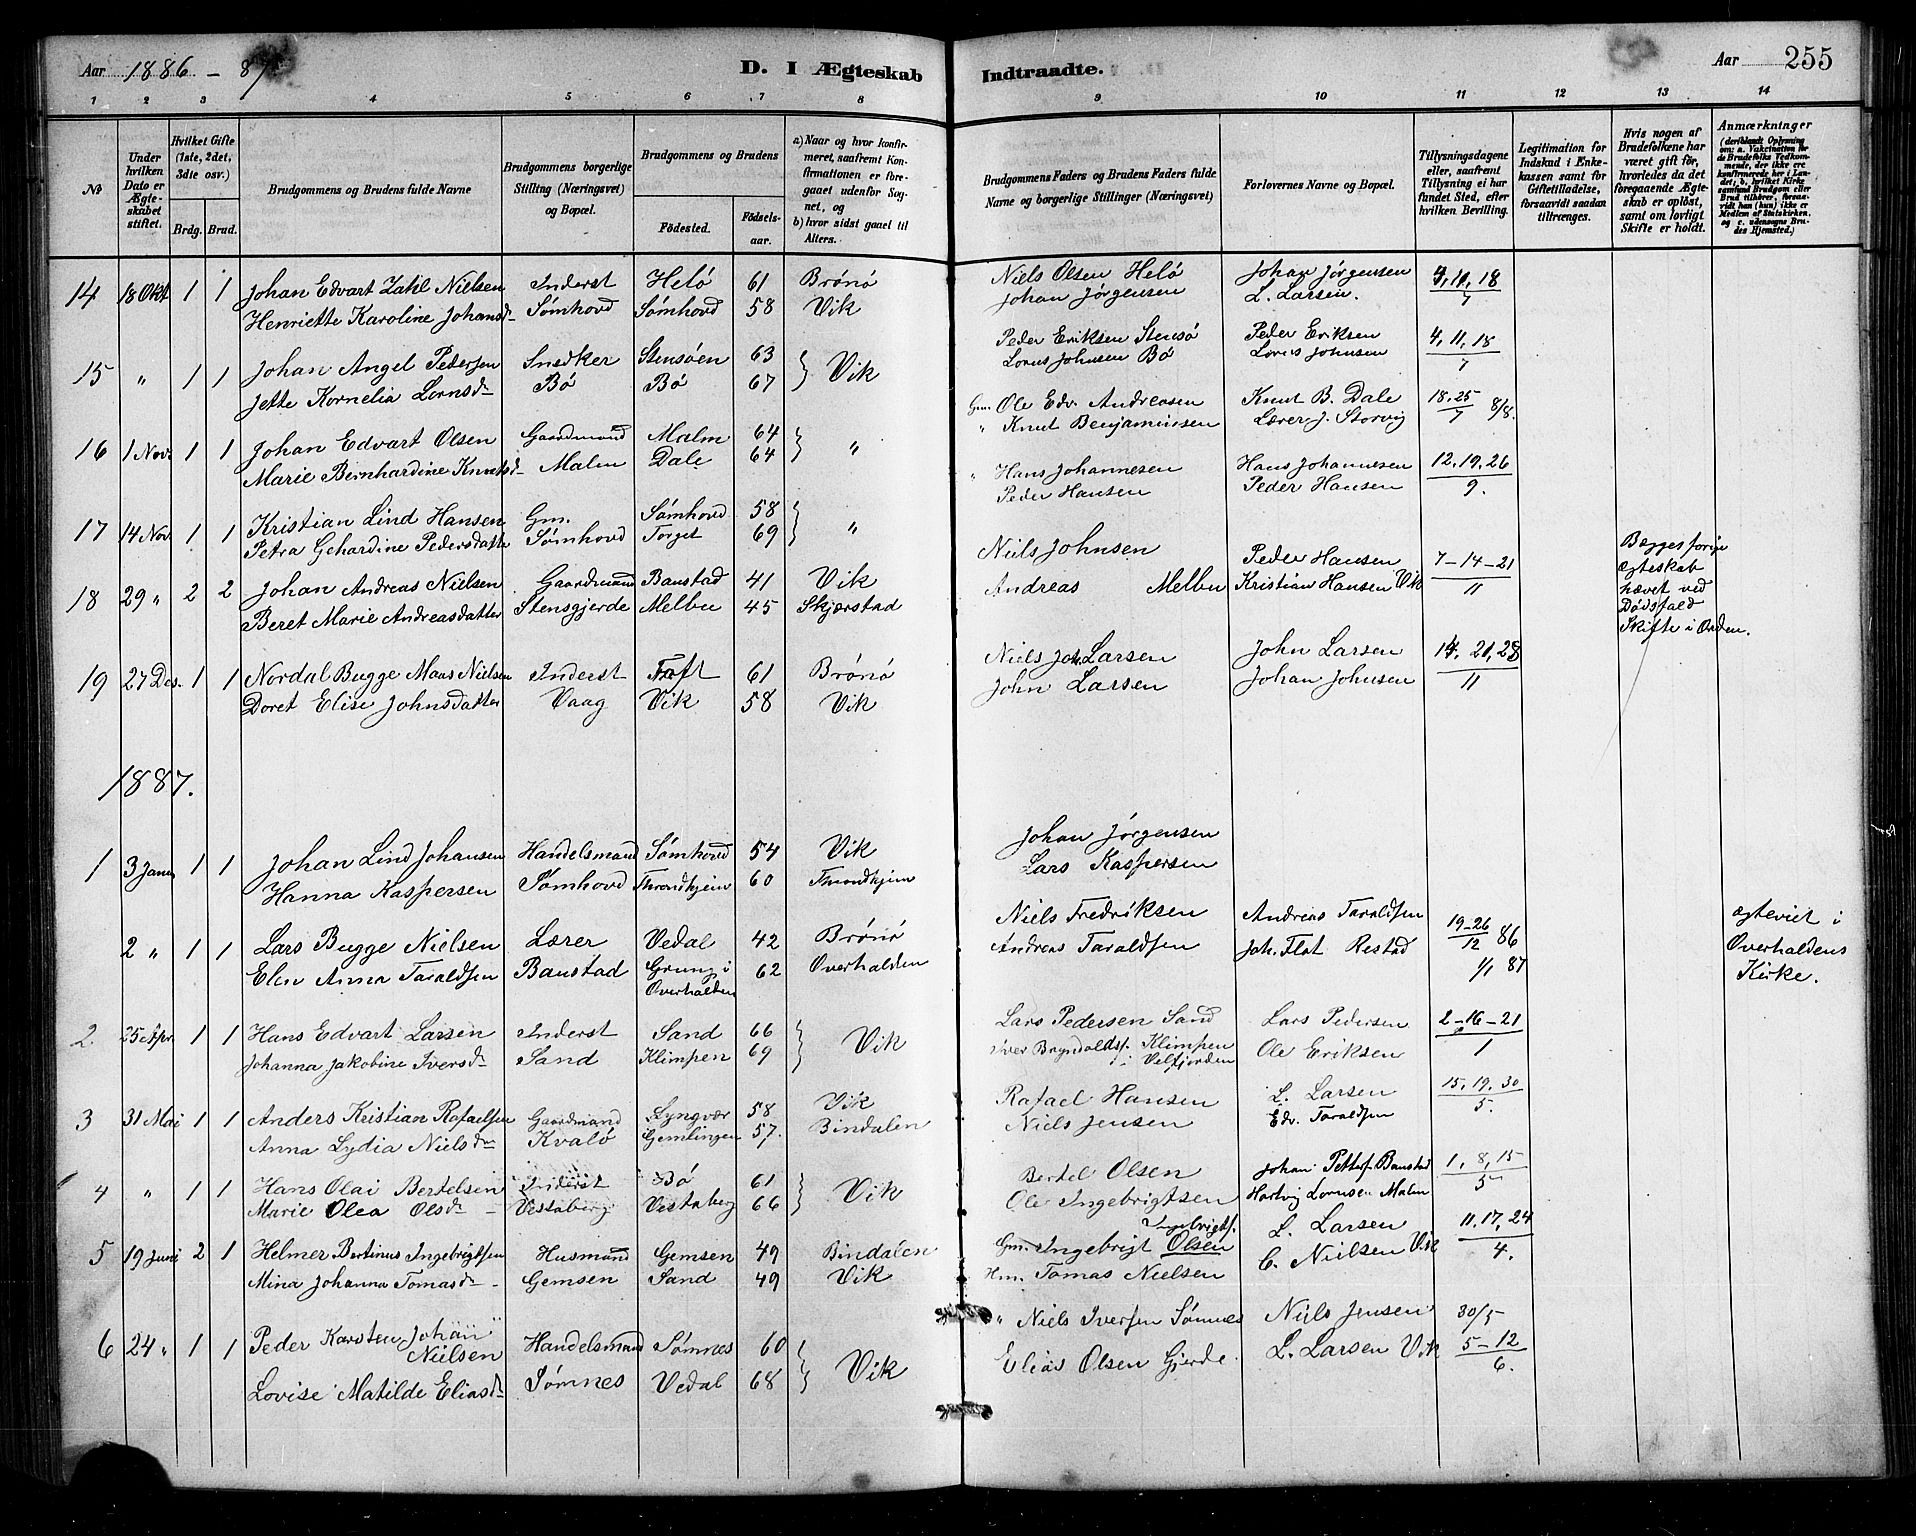 Aar 1886 - 87
D. I Ægteskab Indtraadte.
Aar 255
1 2 3 4 5 6 7 8 9 10 11 12 13 14
No
Under hvilken Dato er Ægteskabet stiftet.
Hvilket Gifte (1ste, 2det, 3die osv.)
Brdg. Brud.
Brudgommens og Brudens fulde Navne
Brudgommens borgerlige Stilling (Næringsvei) og Bopæl.
Brudgommens og Brudens
Fødested.
Fødselsaar.
a) Naar og hvor konfirmeret, saafremt Konfirmationen er foregaaet udenfor Sognet, og
b) hvor sidst gaaet til Alters.
Brudgommens Faders og Brudens Faders fulde Navne og borgerlige Stillinger (Næringsvei)
Forlovernes Navne og Bopæl.
Tillysningsdagene eller, saafremt Tillysning ei har fundet Sted, efter hvilken Bevilling.
Legitimation for Indskud i Enkekassen samt for Giftetilladelse, forsaavidt saadan tiltrænges.
Hvis nogen af Brudefolkene har været gift før, hvorledes da det foregaaende Ægteskab er opløst, samt om lovligt Skifte er holdt.
Anmærkninger (deriblandt Oplysning om: a. Vakcination for de Brudefolks Vedkommende, der ikke ere konfirmerede her i Landet; b, hvilket Kirkesamfund Brudgom eller Brud tilhører, forsaavidt han (hun) ikke er Medlem af Statskirken, og c. udensogns Brudes Hjemsted.)
14 18 Okt 1 1 Johan Edvart Zahl Nielsen Inderst Helø 61 Brønø Niels Olsen Helø Johan Jørgensen 4, 11, 18
Henriette Karoline Johansd- Sømhovd Sømhovd 58 Vik Johan Jørgensen L. Larsen. 7
15 " 1 1 Johan Angel Pedersen Indsker Stensøen 63 Vik Peder Eriksen Stensø Peder Eriksen 4, 11, 18
Jette Kornelia Lornsd- Bø Bø 67 Lorns Johnsen Bø Lorns Johnsen 7
16 1 Nov. 1 1 Johan Edvart Olsen Gaardmand Malm 64 " Gm. Ole Edv. Andreasen Knut B. Dale 18. 25 / 7 8/8.
Marie Bernhardine Knutsd- Malm Dale 64 " Knut Benjaminsen Lærer J. Storvig
17 14 Nov. 1 1 Kristian Lind Hansen Gm. Sømhovd 58 " " Hans Johannesen Hans Johannesen 12. 19. 26
Petra Gehardine Pedersdatter Sømhovd Torget 69 Peder Hansen Peder Hansen 9.
18 29 " 2 2 Johan Andreas Nielsen Gaardmand Baustad 41 Vik Niels Johnsen Peder Hansen 7 - 14 - 21
Beret Marie Andreasdatter Stensgjerde Melbu 45 Skjærstad Andreas Melbu Kristian Hansen Vik 11
Begges forige ægteskab hævet ved Dødsfald Skifte i Orden.
19 27 Des. 1 1 Nordal Bugge Maas Nielsen Inderst Toft 61 Brønø Niels Joh. Larsen John Larsen 14. 21, 28
Doret Elise Johnsdatter Vaag Vik 58 Vik John Larsen Johan Johnsen 11
1887.
1 3 Janu 1 1 Johan Lind Johansen Handelsmand Sømhovd 54 Vik Johan Jørgensen
Hanna Kaspersen Sømhovd Throndhjem 60 Throndhjem Lars Kaspersen
2 " 1 1 Lars Bugge Nielsen Lærer Vedal 42 Brønø Niels Fredriksen Andreas Taraldsen 19-26 / 12 86
Elen Anna Taraldsen Baustad Grung i Overhalden 62 Overhalden Andreas Taraldsen Joh. Flat Restad 1/1 87
ægteviet i Overhaldens Kirke.
2. 25 Apr. 1 1 Hans Edvart Larsen Inderst Sand 66 Vik Lars Pedersen Sand Lars Pedersen 2 - 16 - 21
Johanna Jakobine Iversd- Sand Klimpen 69 Iver Bryndoldsf. Klimpen i Velfjorden Ole Eriksen 1
3 31 Mai 1 1 Anders Kristian Rafaelsen Gaardmand Lyngvær 58 Vik Rafael Hansen L. Larsen 15, 19. 30
Anna Lydia Nielsd- Kvalø Gemlingen 57. Bindalen Niels Jensen Edv. Taraldsen 5.
4 " 1 1 Hans Olai Bertelsen Inderst Bø 61 Vik Bertel Olsen Johan Petters. Baustad 1, 8, 15
Marie Olea Olsd- Vestaberg Vestaberg 66 Ole Ingebrigtsen Hartvig Lornsen Malm 5
5 19 Juni 2 1 Helmer Bertinus Ingebrigtsen Husmand Gemsen 49 Bindalen Gm. Ingebrigt Olsen Ingebrigts. L. Larsen 11, 17, 24
Mina Johanna Tomasd- Gemsen Sand 49 Vik Hm. Tomas Nielsen C. Nielsen Vik 4.
6 24 " 1 1 Peder Karsten Johan Nielsen Handelsmand Sømnes 60 Vik " Niels Iversen Sømnes Niels Jensen 30/5
Lovise Matilde Eliasd- Sømnes Vedal 68 Elias Olsen Gjerde. L. Larsen Vik 5 - 12 / 6.